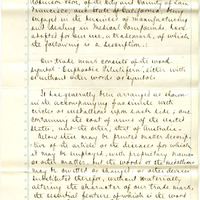 Robinson Son, of the City and County of San
Francisco, and State of California, being
engaged in the business of manufacturing
and dealing in Medical Compounds have
adopted for our use, a trademark, of which
the following is a description:
Our trade mark consists of the word
symbol " Euphrastic Pilulifera, either with
or without other words or symbols
It has generally been arranged as shown
in the accompanying fac similes, with
circles or medallions upon each side, one
containing the coat of arms of the United
States, and the other, that of Australia.
Above this may be printed matter descrip-
tive of the article or the diseases for which
it may be employed, with proprietary names
or other matter, but the words or the medallions
may be omitted or changed, or other devices
substituted therefor, without materially
altering the character of our trade mark,
the essential feature of which is the word